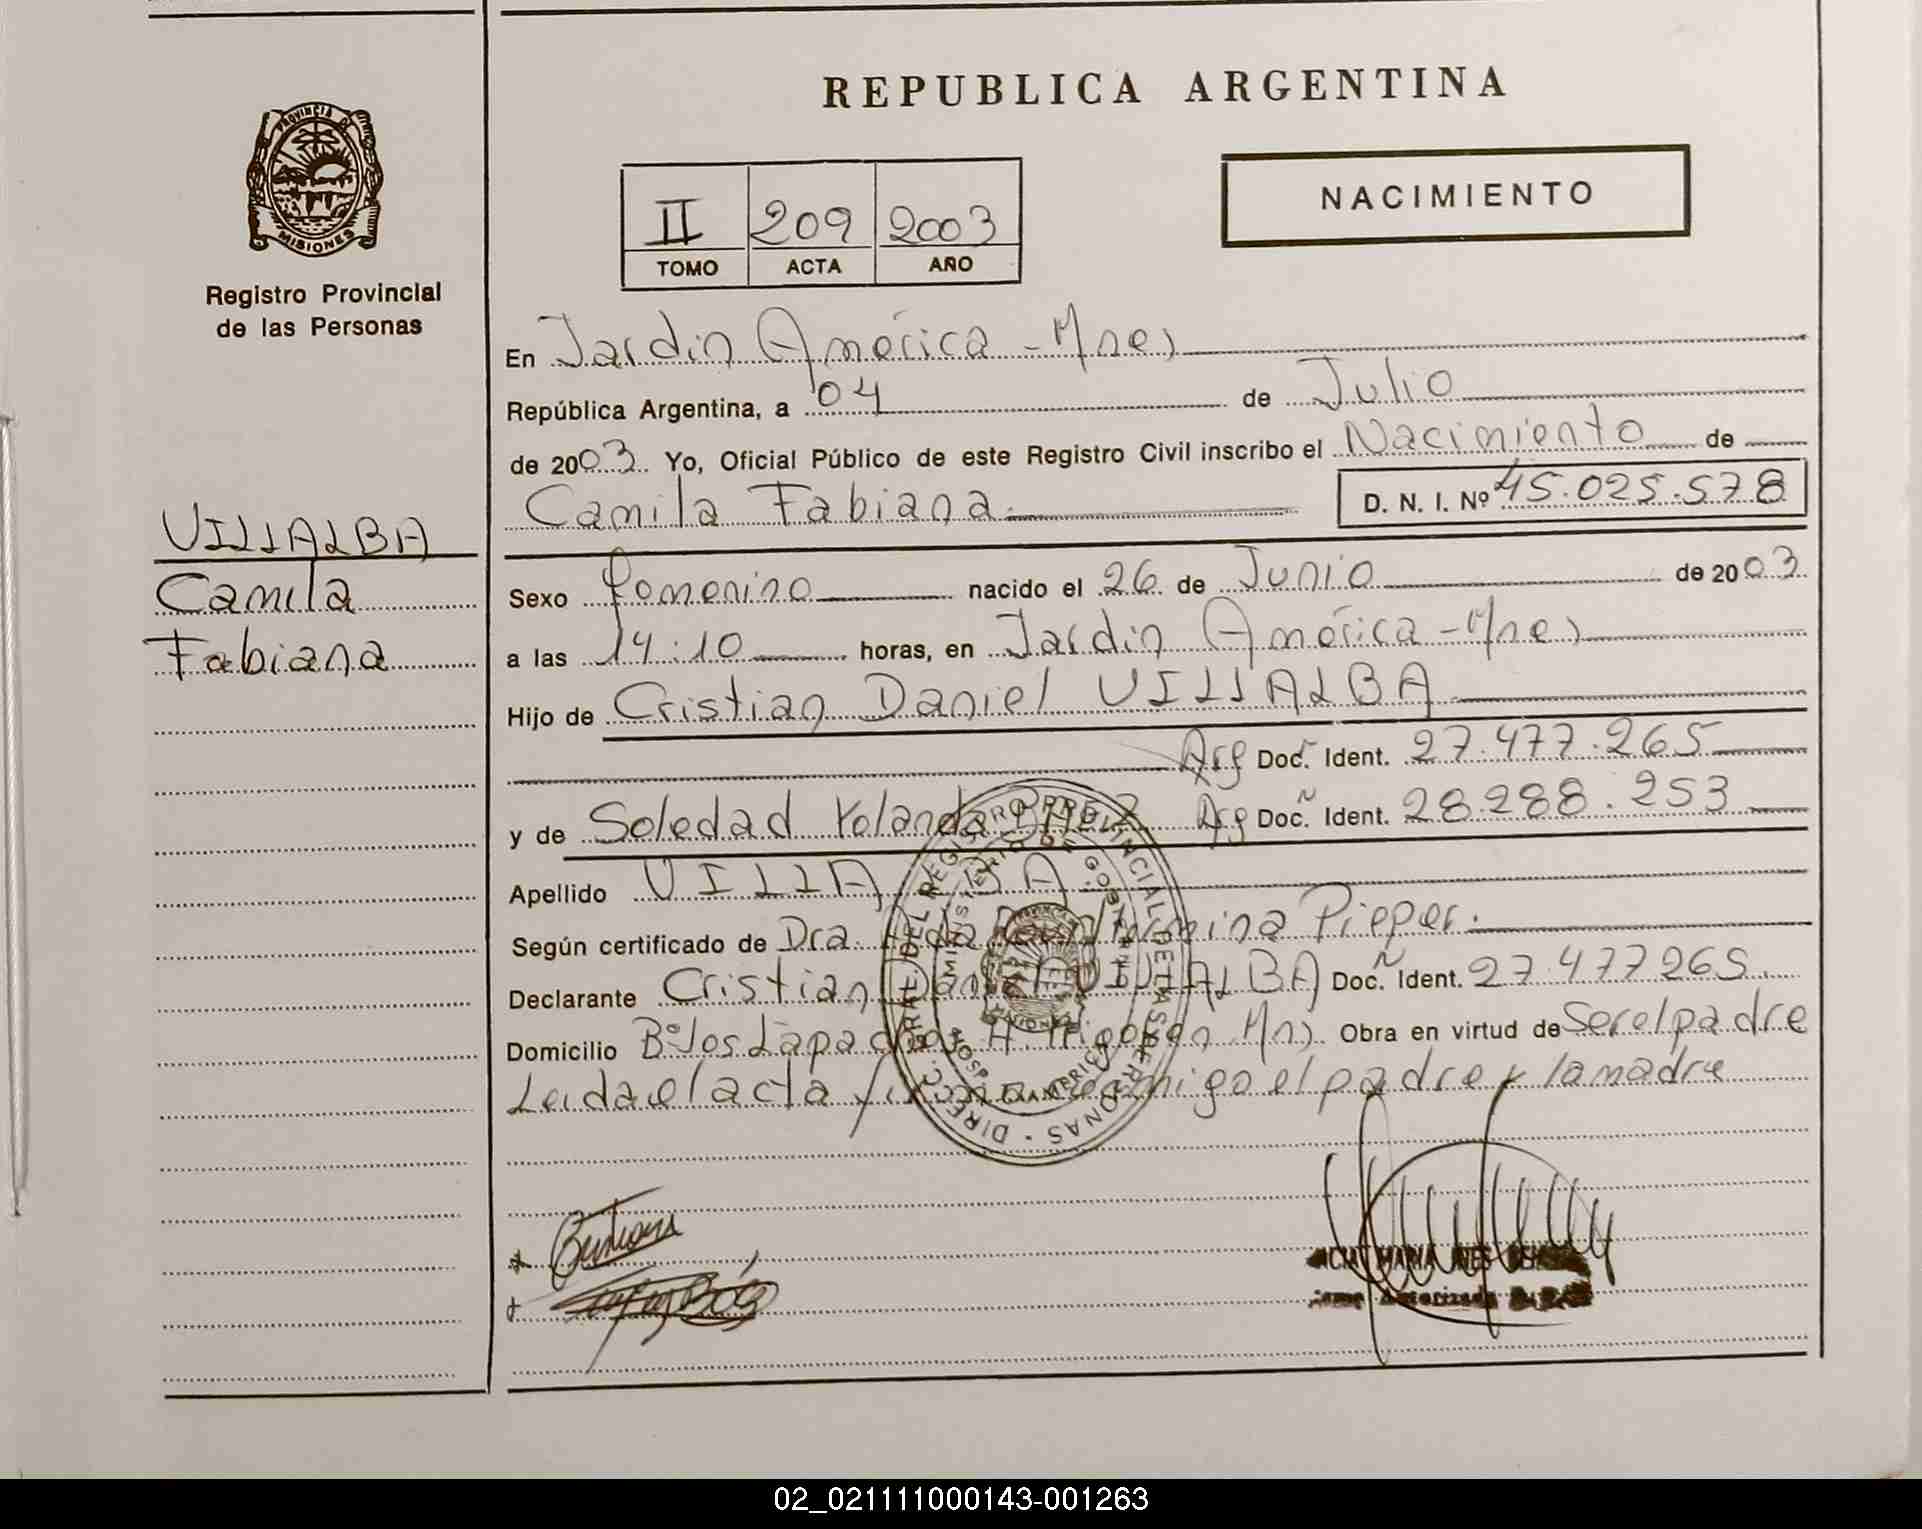 REPUBLICA ARGENTINA
PROVINCIA DE
MISIONES
Registro Provincial
de las Personas
NACIMIENTO
II 209 2003
TOMO ACTA AÑO
En Jardin América - Mnes
República Argentina, a 04 de Julio
de 2003 Yo, Oficial Público de este Registro Civil inscribo el Nacimiento de
Camila Fabiana D. N. I. Nº 45.025.578
VILLALBA
Camila
Fabiana
Sexo femenino nacido el 26 de Junio de 2003
a las 14:10 horas, en Jardin América - Mnes
Hijo de Cristian Daniel VILLALBA
Arg Doc. Ident. 27.477.265
y de Soledad Yolanda Arg Doc. Ident. 28.288.253
Apellido VILLALBA
Según certificado de Dra. Pieper.
Declarante Cristian Daniel VILLALBA Doc. Ident. 27.477265
Domicilio Bº Los Lapachos H. Irigoyen Mns Obra en virtud de Ser el padre
Leida el acta firman conmigo el padre y la madre
DIREC. GRAL. DEL REGISTRO PROVINCIAL DE LAS PERSONAS
MINISTERIO DE GOBIERNO
MISIONES
MARIA INES
02_021111000143-001263